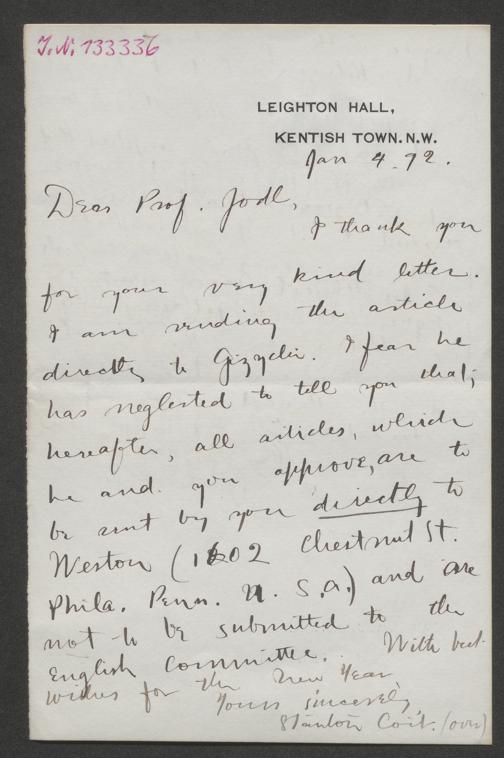 I.N. 133336
LEIGHTON HALL,
KENTISH TOWN. N.W.
Jan 4. 92.
Dear Prof. Jodl,
I thank you
for your very kind letter.
I am sending the article
directly to Gizycki. I fear he
has neglected to tell you that,
hereafter, all articles, which
he and you approve, are to
be sent by you directly to
Weston (1602 Chestnut St.
Phila. Penn. U. S. A.) and are
not to be submitted to the
English Committee. With best
wishes for the New Year,
Yours sincerely,
Stanton Coit. (over)